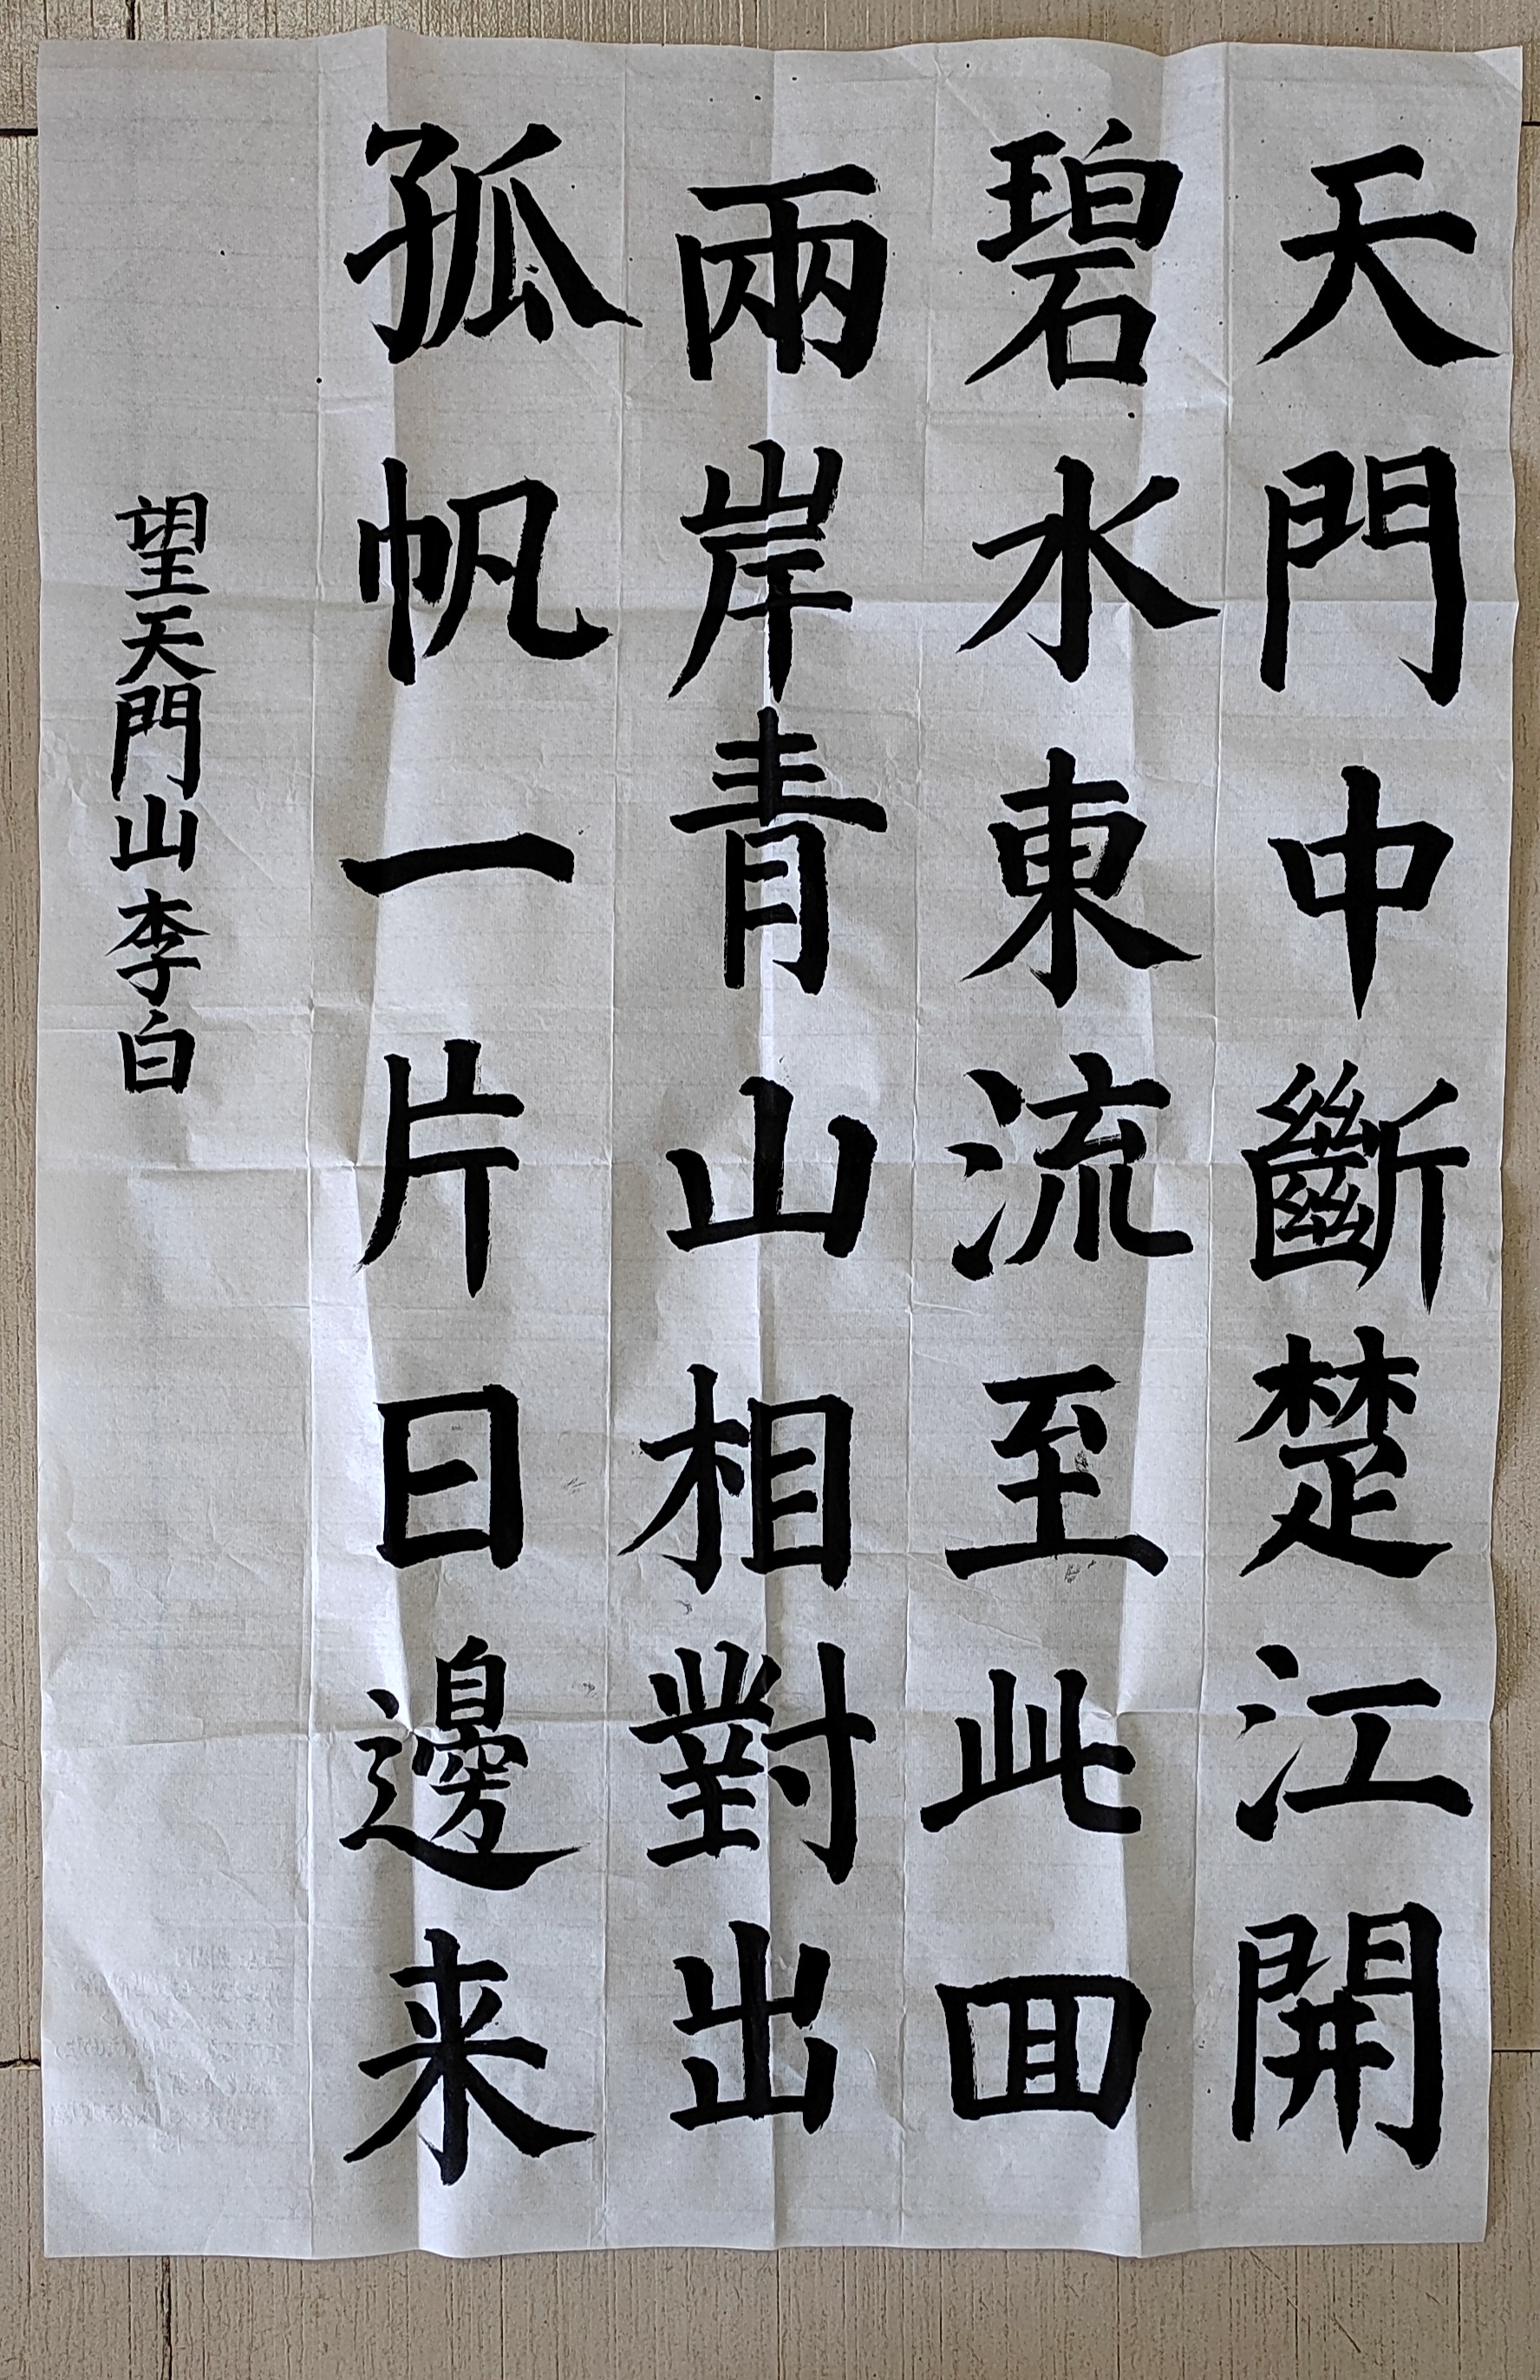 天門中斷楚江開
碧水東流至此回
兩岸青山相對出
孤帆一片日邊来
望天門山李白